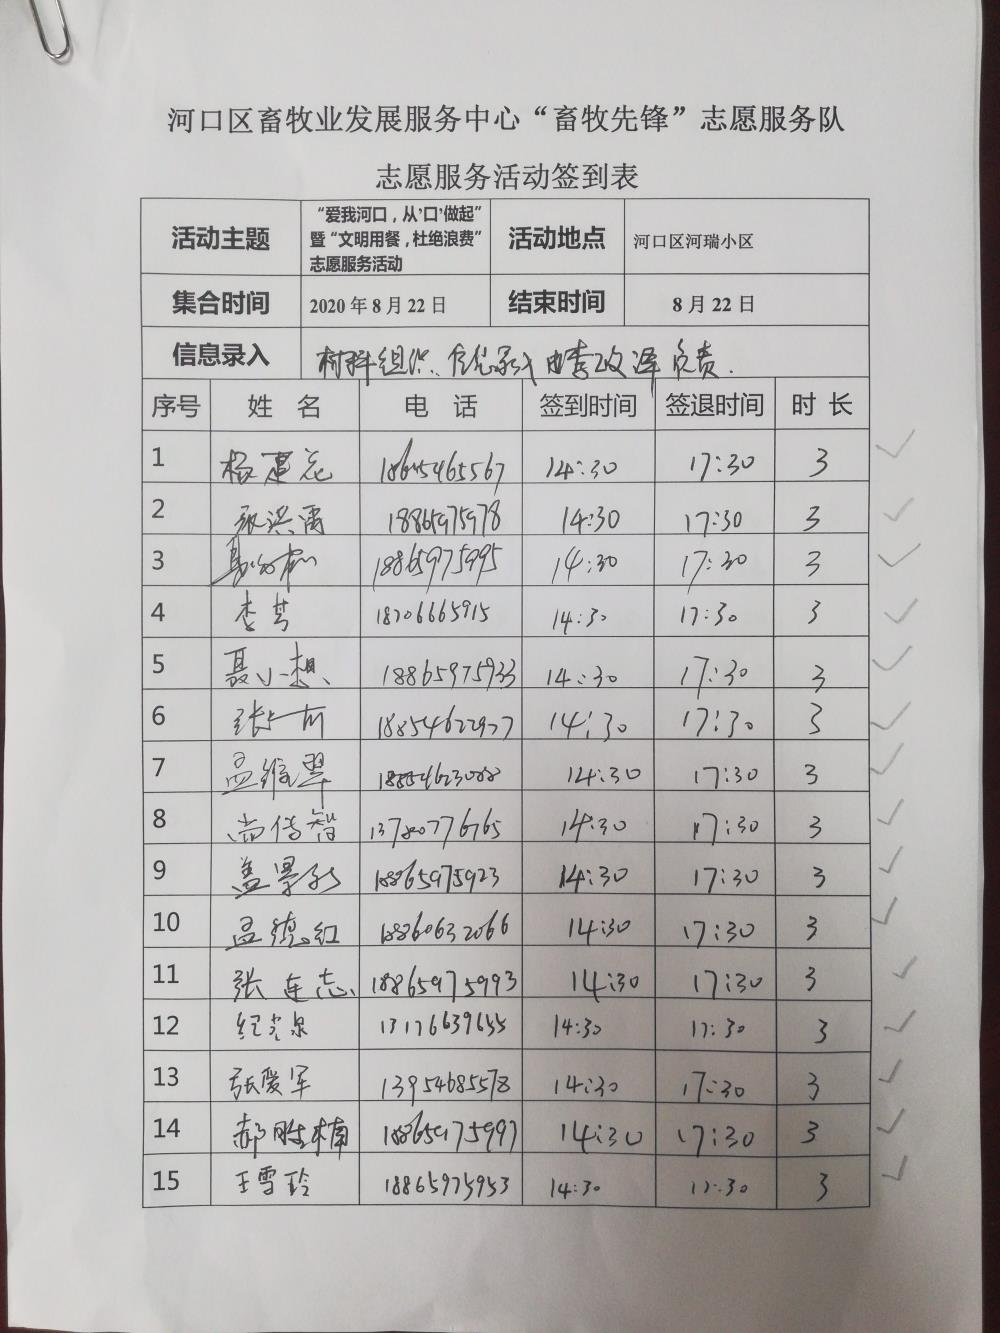 河口区畜牧业发展服务中心“畜牧先锋”志愿服务队
志愿服务活动签到表
活动主题 “爱我河口，从‘口’做起” 暨“文明用餐，杜绝浪费” 志愿服务活动 活动地点 河口区河瑞小区
集合时间 2020年8月22日 结束时间 8月22日
信息录入 材料组织、信息录入由李政泽负责.
序号 姓 名 电 话 签到时间 签退时间 时 长
1 杨建花 18645465567 14:30 17:30 3
2 张洪禹 18865975978 14:30 17:30 3
3 18865975995 14:30 17:30 3
4 李芳 18706665915 14:30 17:30 3
5 聂小想 18865975933 14:30 17:30 3
6 18854622927 14:30 17:30 3
7 孟维翠 14:30 17:30 3
8 尚传智 13780776765 14:30 17:30 3
9 盖景 18865975923 14:30 17:30 3
10 孟德红 18860632066 14:30 17:30 3
11 张连志 18865975993 14:30 17:30 3
12 纪光泉 13176639655 14:30 17:30 3
13 张爱军 13954685578 14:30 17:30 3
14 郝胜楠 18865975997 14:30 17:30 3
15 王雪玲 18865975953 14:30 17:30 3